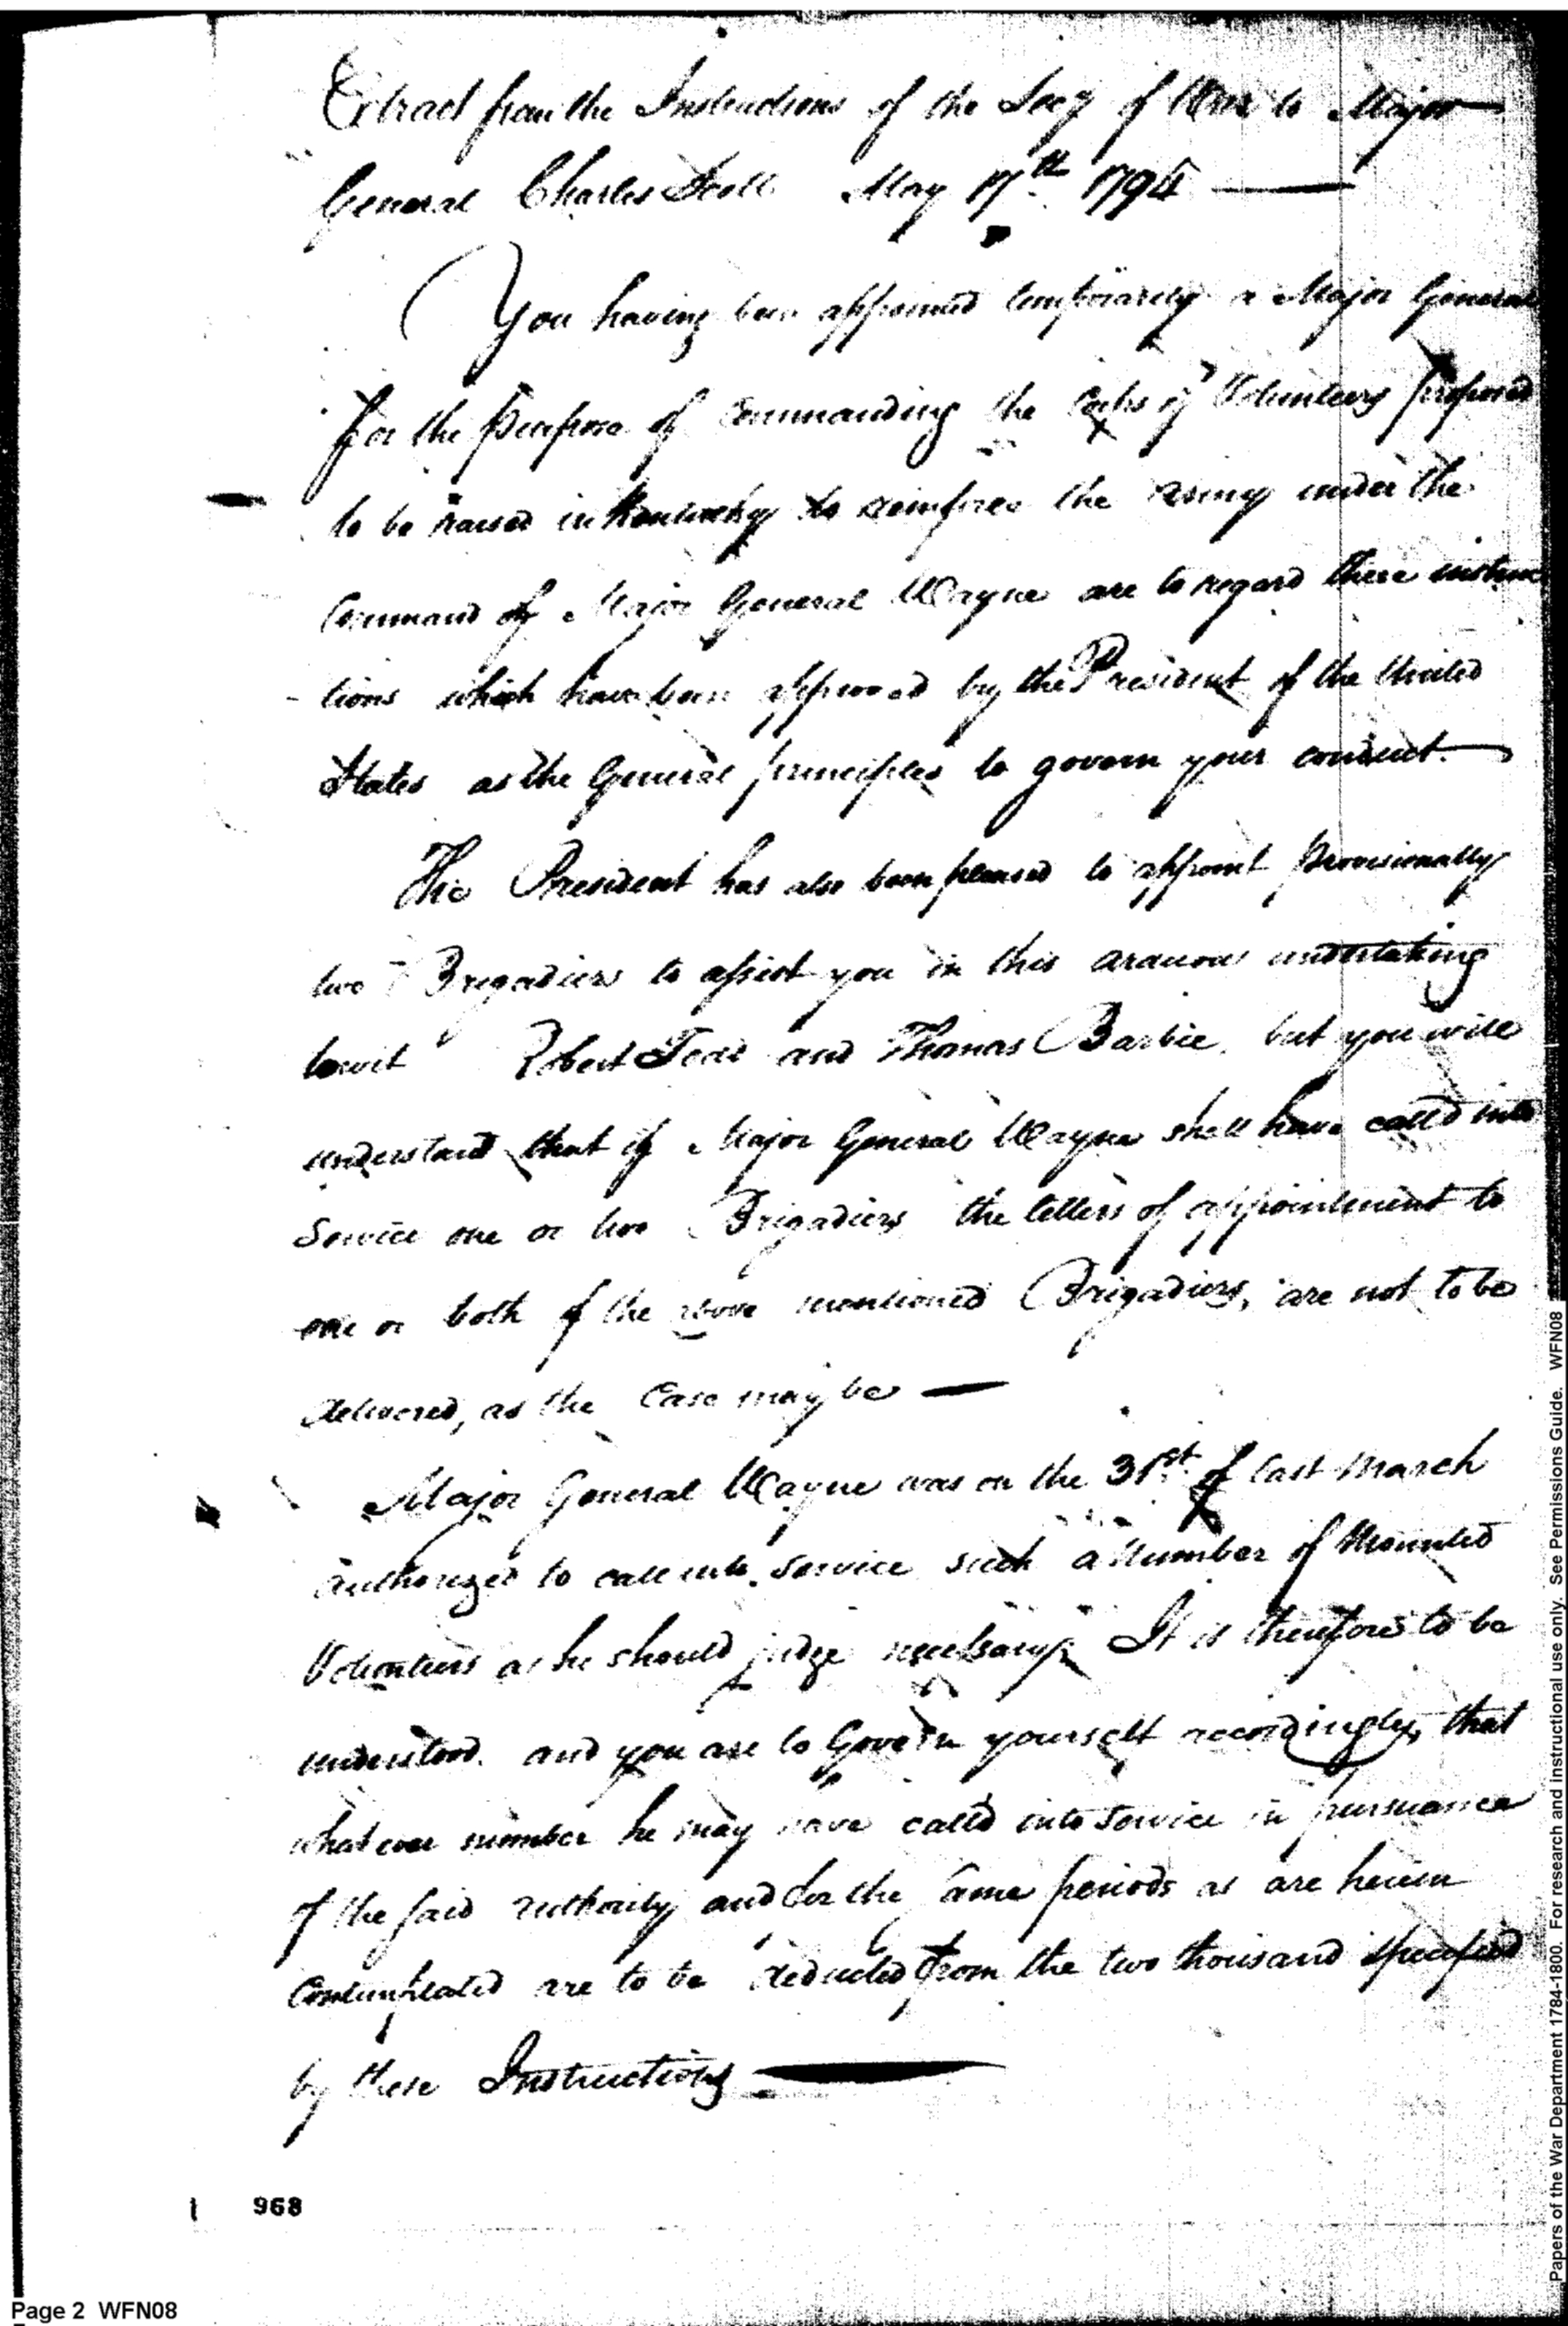 Extract from the Instructions of the Secy of War to Major
General Charles Scott May 17th 1794
You having been appointed temporarily a Major General
for the purpose of commanding the Corps of Volunteers proposed
to be raised in Kentucky to reinforce the army under the
Command of Major General Wayne are to regard these instruc
tions which have been approved by the President of the United
States as the General principles to govern your conduct.
The President has also been pleased to appoint provisionally
two Brigadiers to assist you in this arduous undertaking
towit Robert Todd and Thomas Barbee, but you will
understand that if Major General Wayne shall have called into
Service one or two Brigadiers the letters of appointment to
one or both of the above mentioned Brigadiers, are not to be
delivered, as the Case may be
Major General Wayne was on the 31st of last March
authorized to call into Service such a number of Mounted
Volunteers as he should judge necessary. It is therefore to be
understood. and you are to Govern yourself accordingly, that
what ever number he may have called into Service in pursuance
of the said authority and for the same periods as are herein
Contemplated are to be deducted from the two thousand specified
by these Instructions
968
Page 2 WFN08
Papers of the War Department 1784-1800. For research and instructional use only. See Permissions Guide. WFN08